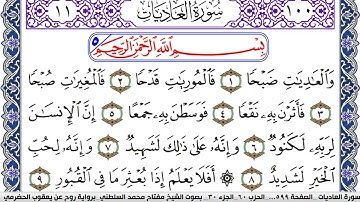 ١١ سُورَةُ العَادِيَات ١٠٠
بِسْمِ ٱللَّهِ ٱلرَّحْمَٰنِ ٱلرَّحِيمِ
وَٱلْعَٰدِيَٰتِ ضَبْحًا ١ فَٱلْمُورِيَٰتِ قَدْحًا ٢ فَٱلْمُغِيرَٰتِ صُبْحًا
٣ فَأَثَرْنَ بِهِۦ نَقْعًا ٤ فَوَسَطْنَ بِهِۦ جَمْعًا ٥ إِنَّ ٱلْإِنسَٰنَ
لِرَبِّهِۦ لَكَنُودٌ ٦ وَإِنَّهُۥ عَلَىٰ ذَٰلِكَ لَشَهِيدٌ ٧ وَإِنَّهُۥ لِحُبِّ
ٱلْخَيْرِ لَشَدِيدٌ ٨ أَفَلَا يَعْلَمُ إِذَا بُعْثِرَ مَا فِى ٱلْقُبُورِ ٩
سورة العاديات الصفحة ٥٩٩ الحزب ٦٠ الجزء ٣٠ بصوت الشيخ مفتاح محمد السلطني برواية روح عن يعقوب الحضرمي